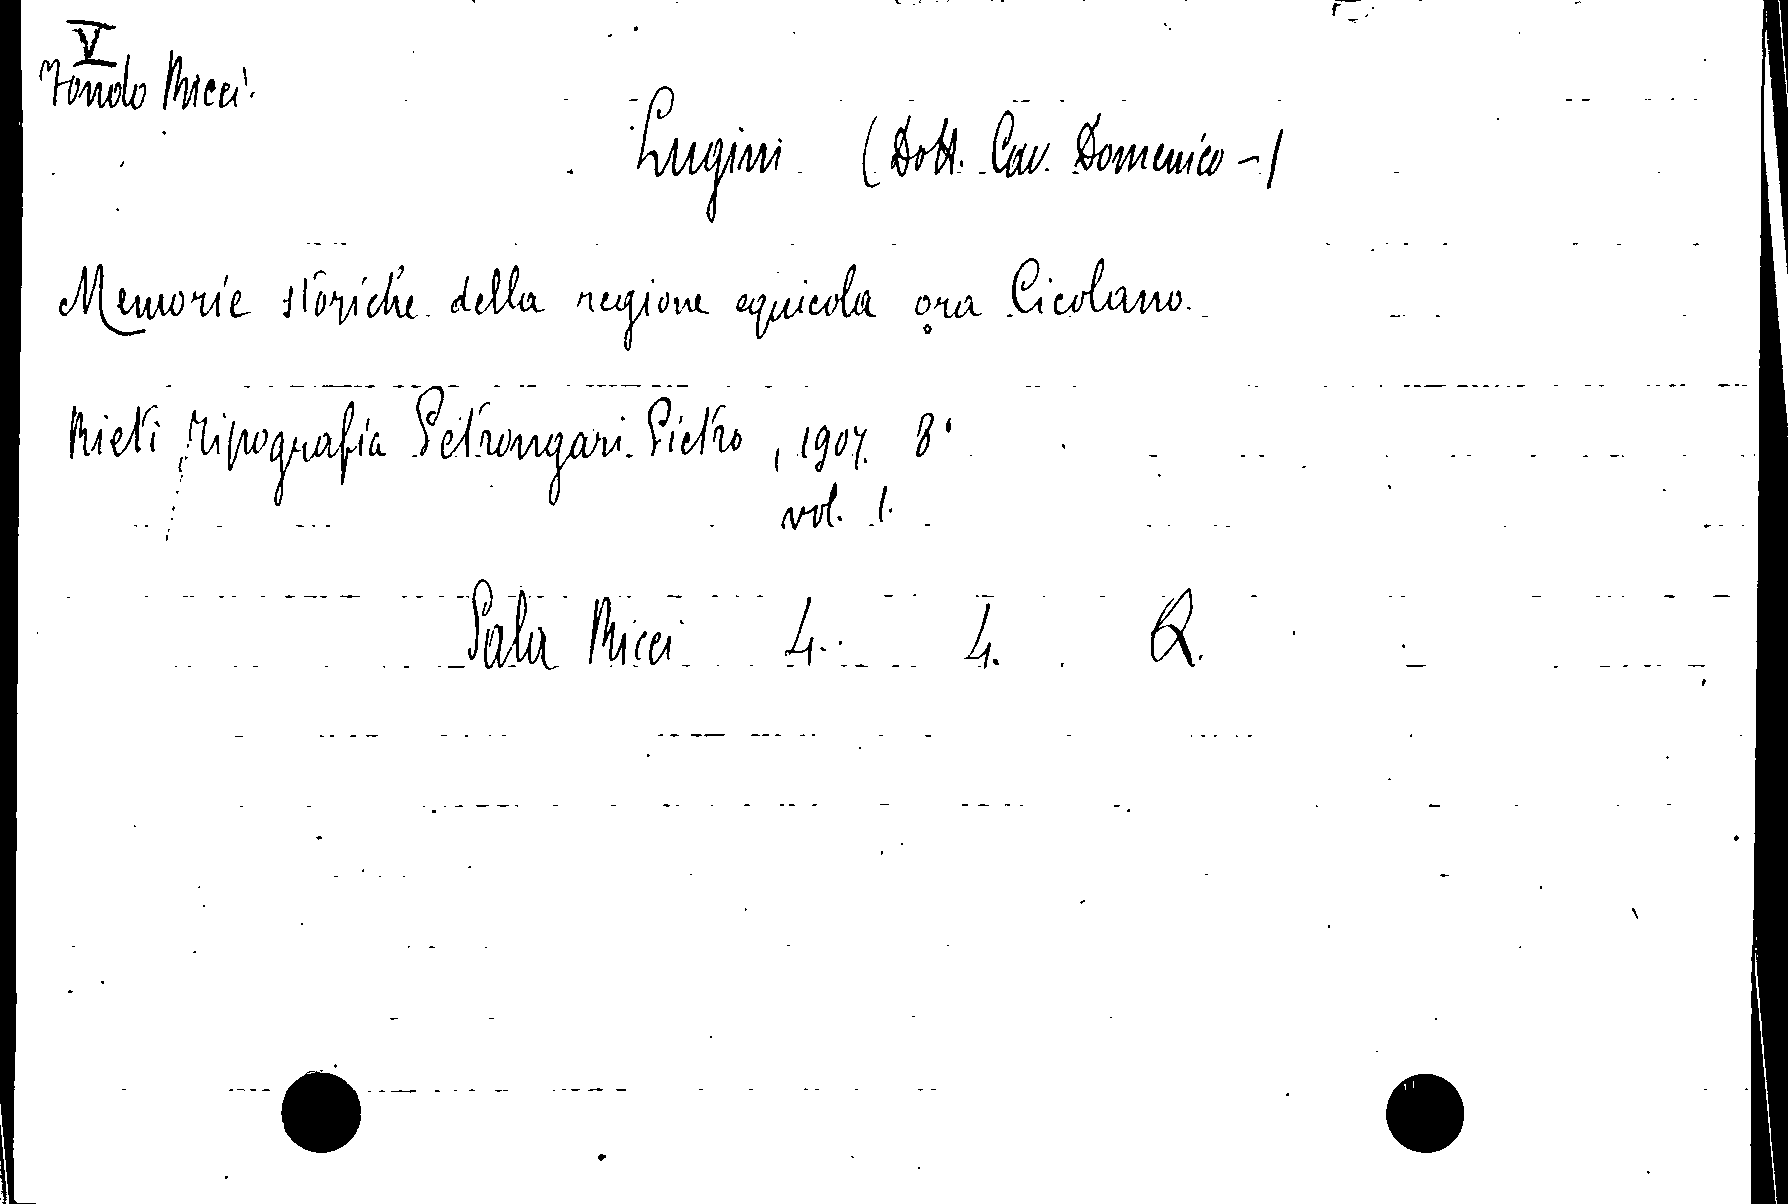 V
Fondo Ricci.
Lugini (Dott. Cav. Domenico -)
Memorie storiche della regione equicola ora Cicolano.
Rieti, Tipografia Petrongari Pietro, 1907. 8°
vol. 1.
Sala Ricci 4. 4. Q.